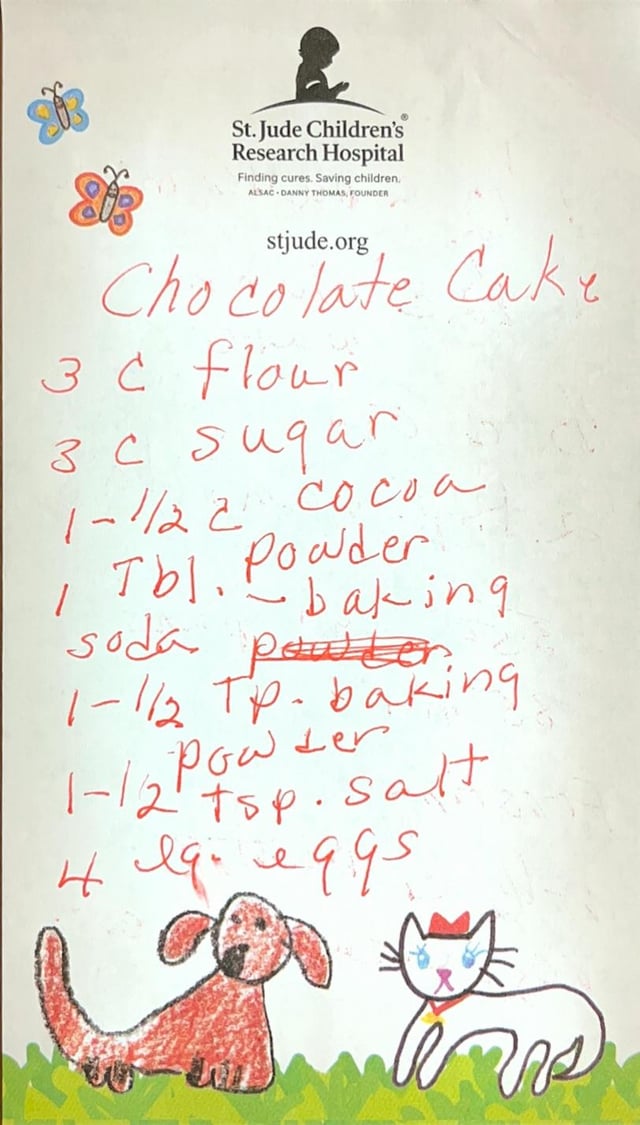 St. Jude Children's®
Research Hospital
Finding cures. Saving children.
ALSAC • DANNY THOMAS, FOUNDER
stjude.org
Chocolate Cake
3 C flour
3 C sugar
1-1/2 c cocoa
powder
1 Tbl. - baking
soda powder
1-1/2 Tp. baking
powder
1-1/2 tsp. salt
4 lg. eggs